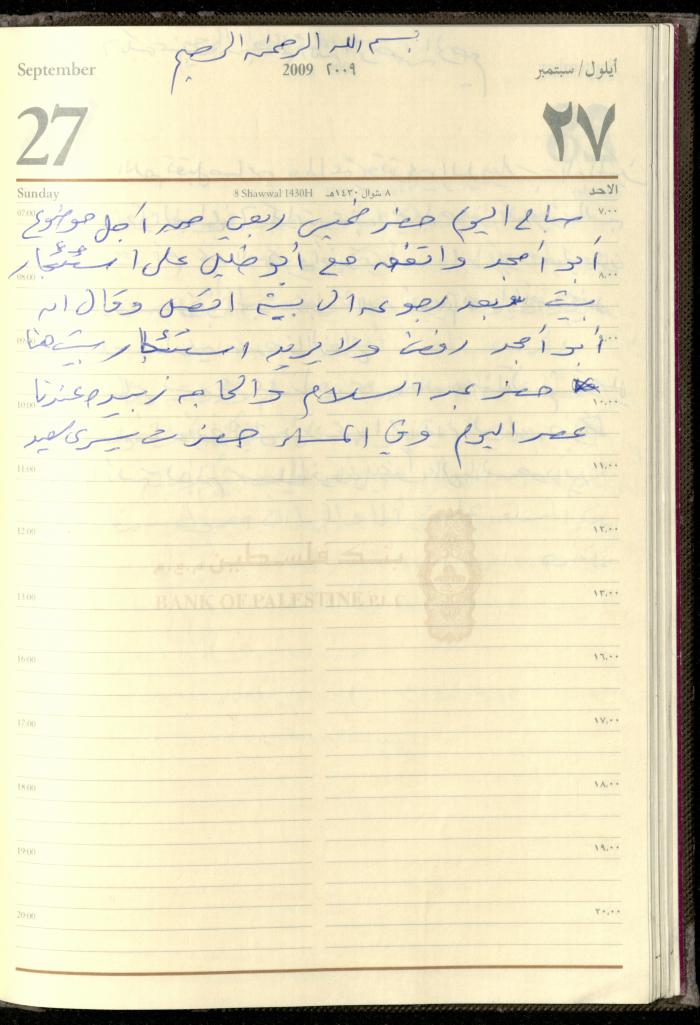 بسم الله الرحمن الرحيم
September 2009 ٢٠٠٩ أيلول/سبتمبر
27 ٢٧
Sunday 8 Shawwal 1430H ٨ شوال ١٤٣٠هـ الاحد
07:00 صباح اليوم حضر خميس ربعي من اجل موضوع ٧،٠٠
أبو أمجد واتفق مع أبو خليل على استئجار
08:00 ٨،٠٠
بيت وبعد رجوعه الى بيته اتصل وقال ان
09:00 أبو أمجد رفض ولا يريد استئجار بيت هنا ٩،٠٠
حضر عبد السلام والحاجه زبيده عندنا
10:00 ١٠،٠٠
عصر اليوم وفي المساء حضرت يسرى سعيد
11:00 ١١،٠٠
12:00 ١٢،٠٠
بنك فلسطين
BANK OF PALESTINE P.L.C
13:00 ١٣،٠٠
16:00 ١٦،٠٠
17:00 ١٧،٠٠
18:00 ١٨،٠٠
19:00 ١٩،٠٠
20:00 ٢٠،٠٠